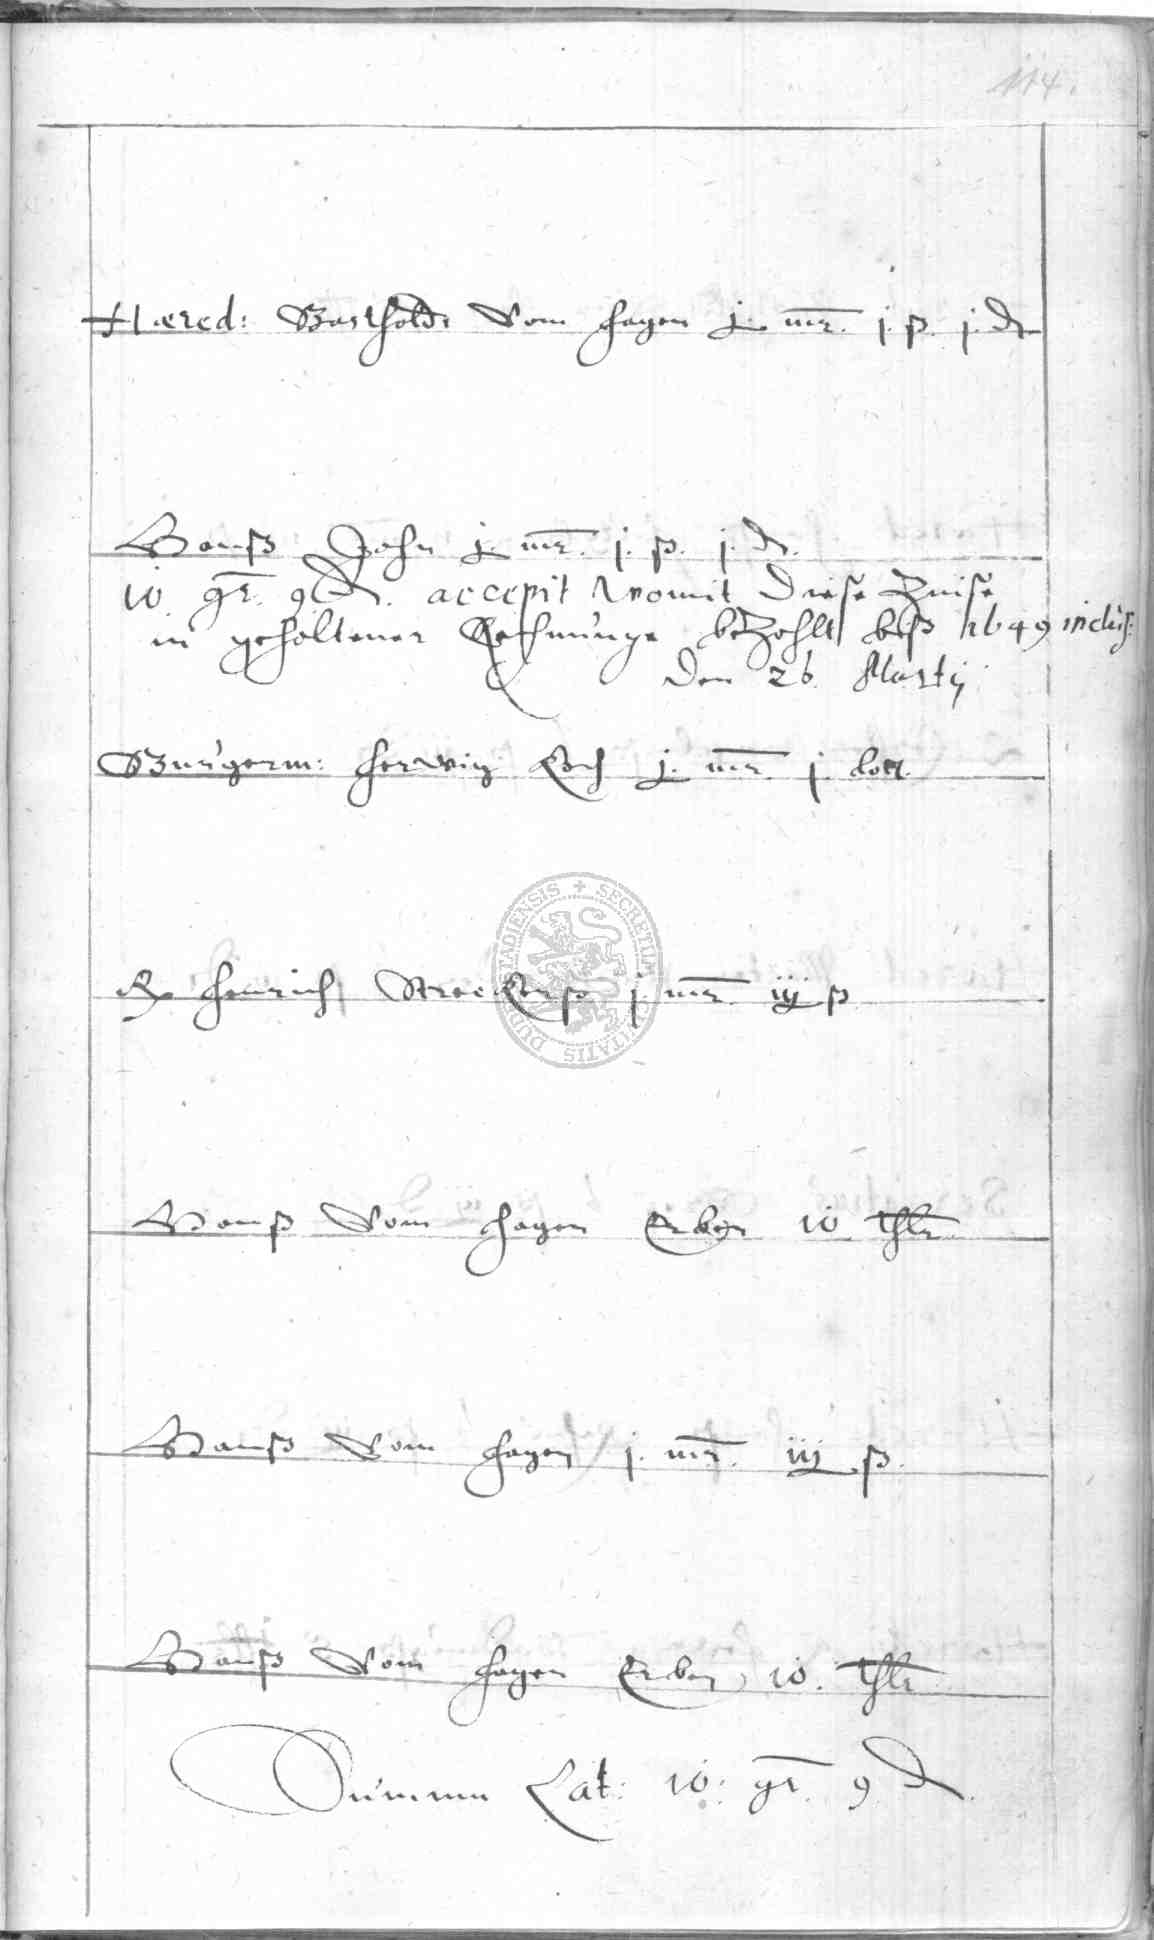 114.
Hæred: Barthold Vom Hagen j. mr. j. ß. j. d
Hanß Jahn j. mr. j. ß. j. d.
10. gr. 9 d. accepit womit diese Zinse
in gehaltener Rechnunge bezahlt biß 1649 inclus:
den 26. Martij
Burgerm: Herwig Koch j. mr. j. lott.
Rx Henrich Streckerß j. mr. iij ß
SECRETUM CIVITATIS DUDERSTADIENSIS
Hanß Vom Hagen Erben 10 thlr
Hanß Vom Hagen j. mr. iij ß.
Hanß Vom Hagen Erben 10. thlr
Summa Lat: 10: gr. 9 d.